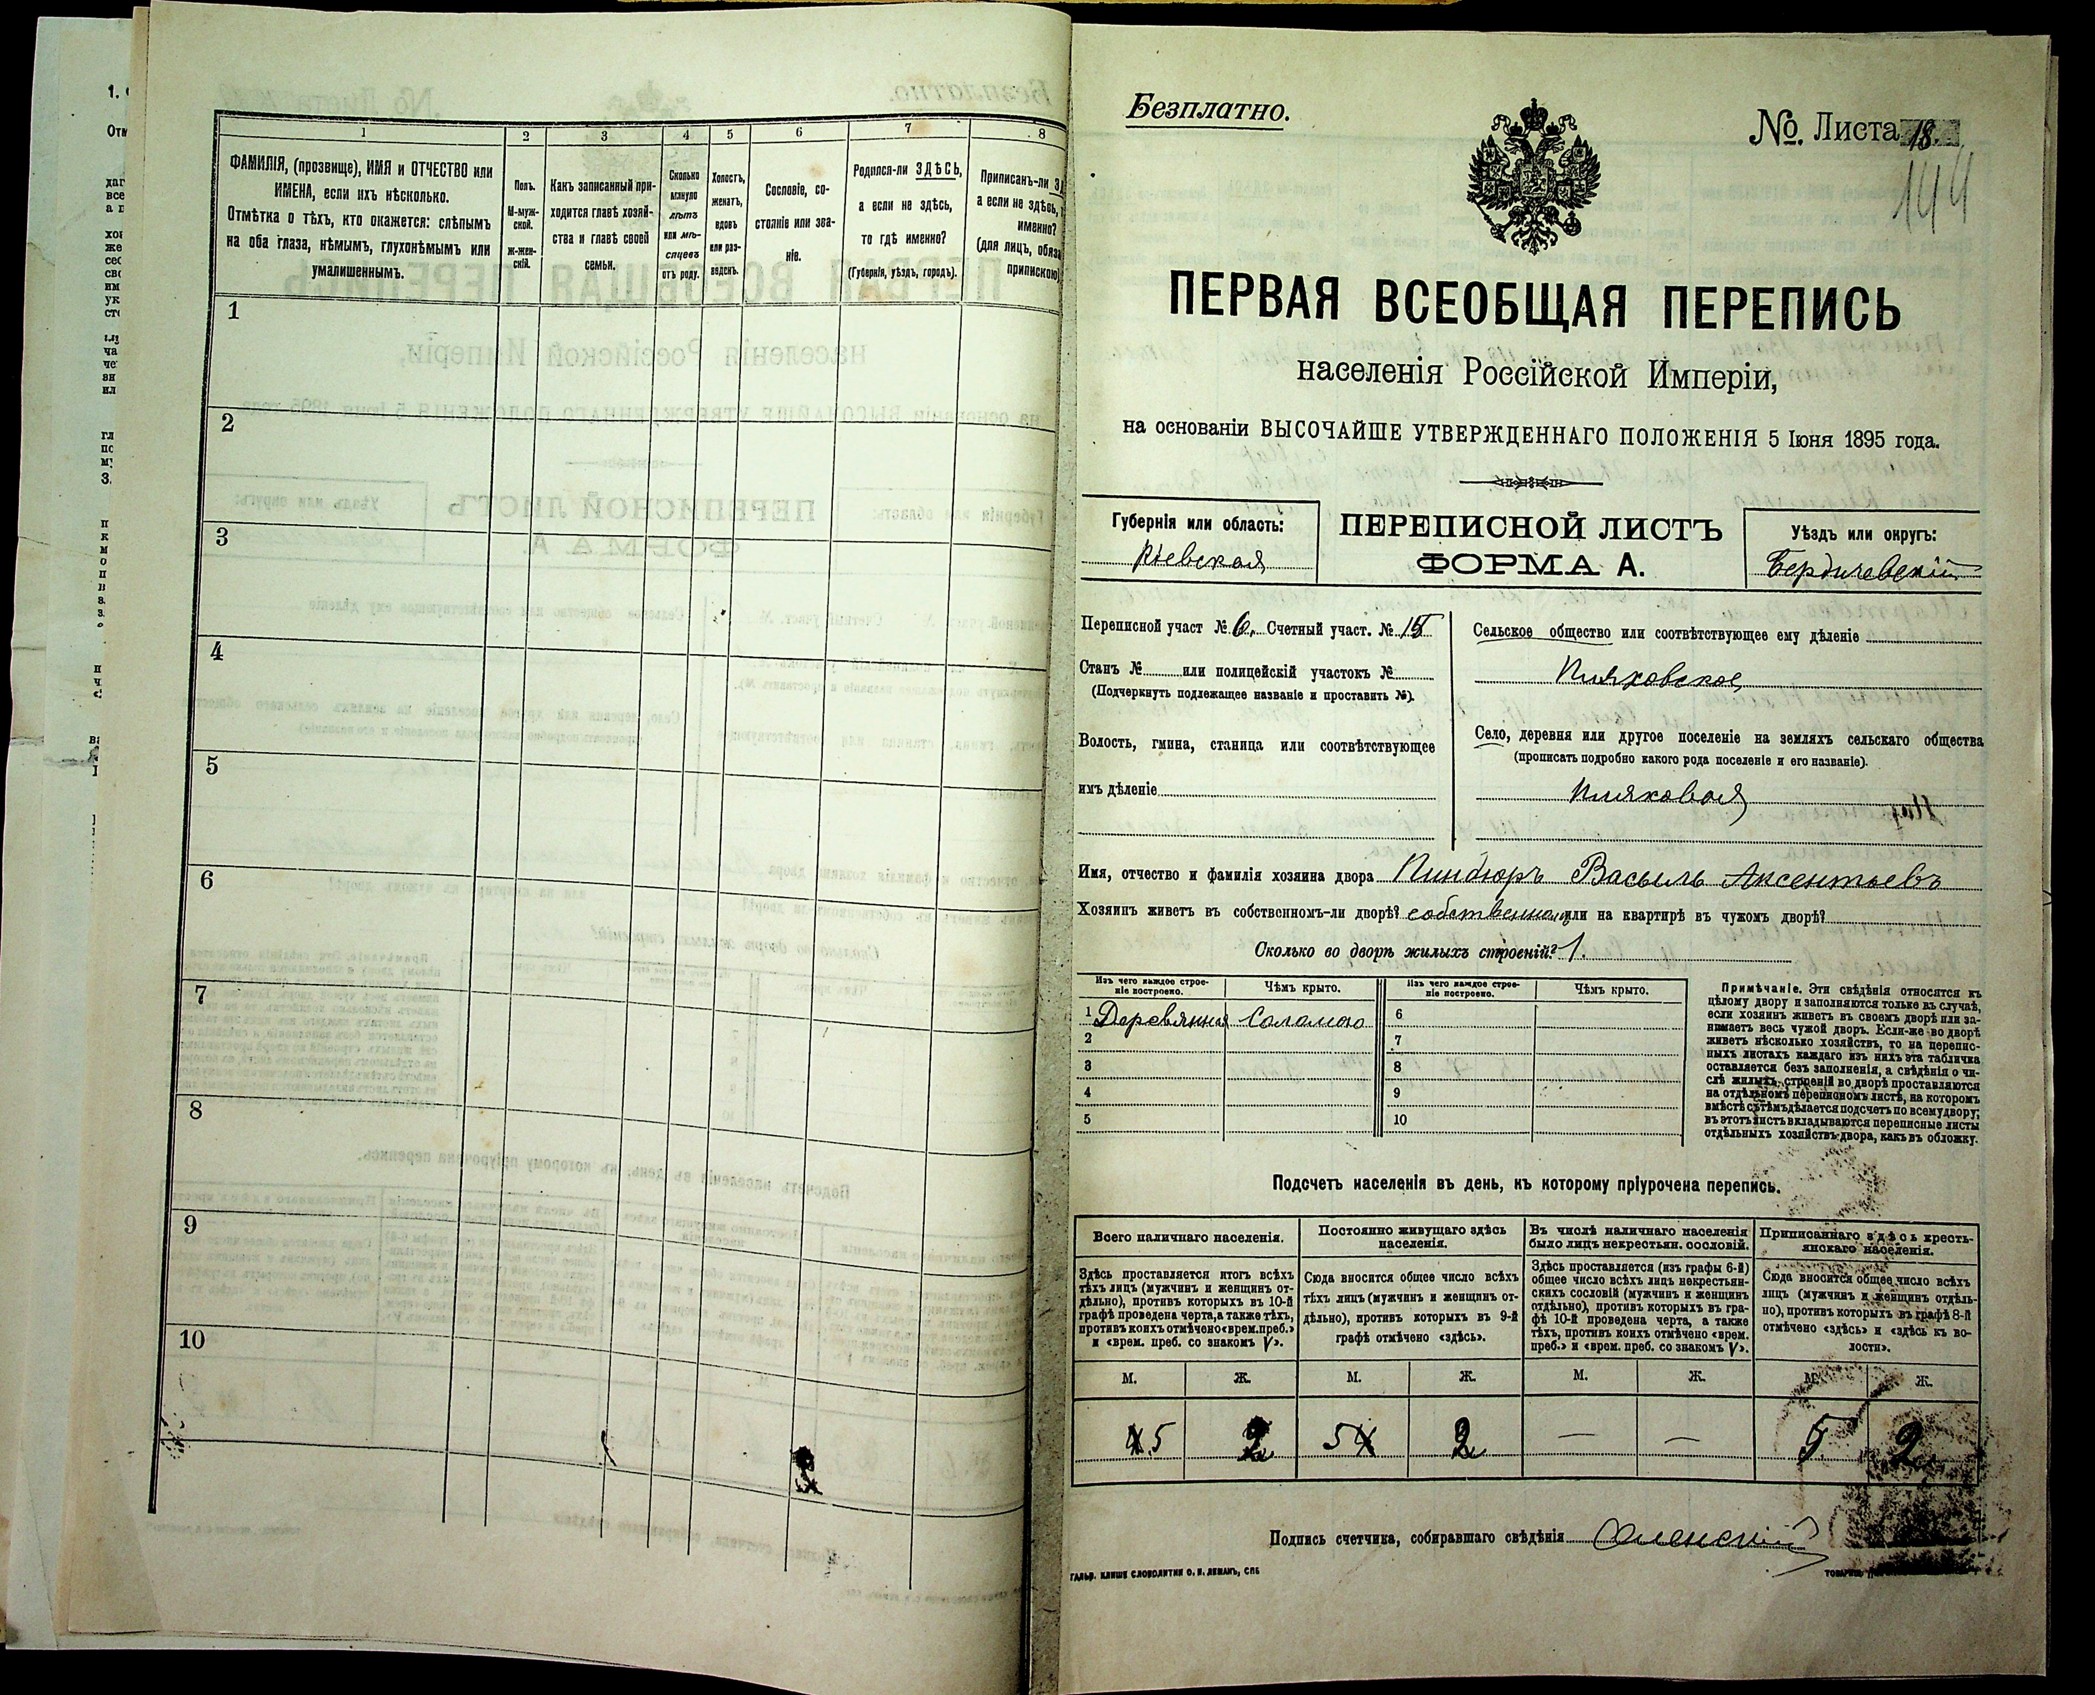 1
2
3
4
5
6
7
8
ФАМИЛІЯ, (прозвище), ИМЯ и ОТЧЕСТВО или
ИМЕНА, если ихъ нѣсколько.
Отмѣтка о тѣхъ, кто окажется: слѣпымъ
на оба глаза, нѣмымъ, глухонѣмымъ или
умалишеннымъ.
Полъ.
М-муж-
ской.
Ж-жен-
скій.
Какъ записанный при-
ходится главѣ хозяй-
ства и главѣ своей
семьи.
Сколько
минуло
лѣтъ
или мѣ-
сяцевъ
отъ роду.
Холостъ,
женатъ,
вдовъ
или раз-
веденъ.
Сословіе, со-
стояніе или зва-
ніе.
Родился-ли ЗДѢСЬ,
а если не здѣсь,
то гдѣ именно?
(Губернія, уѣздъ, городъ).
Приписанъ-ли
а если не здѣсь,
именно?
(для лицъ,
припискою
1
2
3
4
5
6
7
8
9
10
Безплатно.
№. Листа 18.
144
ПЕРВАЯ ВСЕОБЩАЯ ПЕРЕПИСЬ
населенія Россійской Имперіи,
на основаніи ВЫСОЧАЙШЕ УТВЕРЖДЕННАГО ПОЛОЖЕНІЯ 5 Іюня 1895 года.
Губернія или область:
Кіевская
ПЕРЕПИСНОЙ ЛИСТЪ
ФОРМА А.
Уѣздъ или округъ:
Бердичевскій
Переписной участ № 6. Счетный участ. № 15
Станъ № или полицейскій участокъ №
(Подчеркнуть подлежащее названіе и проставить №).
Волость, гмина, станица или соотвѣтствующее
имъ дѣленіе
Сельское общество или соотвѣтствующее ему дѣленіе
Пляховское
Село, деревня или другое поселеніе на земляхъ сельскаго общества
(прописать подробно какого рода поселеніе и его названіе).
Пляховая
Имя, отчество и фамилія хозяина двора Пиндюръ Васыль Аксентьевъ
Хозяинъ живетъ въ собственномъ-ли дворѣ? собственномъ или на квартирѣ въ чужомъ дворѣ?
Сколько во дворѣ жилыхъ строеній? 1.
Изъ чего каждое строе-
ніе построено.
Чѣмъ крыто.
Изъ чего каждое строе-
ніе построено.
Чѣмъ крыто.
1 Деревянная Соломою
2
3
4
5
6
7
8
9
10
Примѣчаніе. Эти свѣдѣнія относятся къ
цѣлому двору и заполняются только въ случаѣ,
если хозяинъ живетъ въ своемъ дворѣ или за-
нимаетъ весь чужой дворъ. Если-же во дворѣ
живетъ нѣсколько хозяйствъ, то на перепис-
ныхъ листахъ каждаго изъ нихъ эта табличка
оставляется безъ заполненія, а свѣдѣнія о чи-
слѣ жилыхъ строеній во дворѣ проставляются
на отдѣльномъ переписномъ листѣ, на которомъ
вмѣстѣ съ тѣмъ дѣлается подсчетъ по всему двору;
въ этотъ листъ вкладываются переписные листы
отдѣльныхъ хозяйствъ двора, какъ въ обложку.
Подсчетъ населенія въ день, къ которому пріурочена перепись.
Всего наличнаго населенія.
Постоянно живущаго здѣсь
населенія.
Въ числѣ наличнаго населенія
было лицъ некрестьян. сословій.
Приписаннаго здѣсь кресть-
янскаго населенія.
Здѣсь проставляется итогъ всѣхъ
тѣхъ лицъ (мужчинъ и женщинъ от-
дѣльно), противъ которыхъ въ 10-й
графѣ проведена черта, а также тѣхъ,
противъ коихъ отмѣчено «врем. преб.»
и «врем. преб. со знакомъ V».
Сюда вносится общее число всѣхъ
тѣхъ лицъ (мужчинъ и женщинъ от-
дѣльно), противъ которыхъ въ 9-й
графѣ отмѣчено «здѣсь».
Здѣсь проставляется (изъ графы 6-й)
общее число всѣхъ лицъ некрестьян-
скихъ сословій (мужчинъ и женщинъ
отдѣльно), противъ которыхъ въ гра-
фѣ 10-й проведена черта, а также
тѣхъ, противъ коихъ отмѣчено «врем.
преб.» и «врем. преб. со знакомъ V».
Сюда вносится общее число всѣхъ
лицъ (мужчинъ и женщинъ отдѣль-
но), противъ которыхъ въ графѣ 8-й
отмѣчено «здѣсь» и «здѣсь къ во-
лости».
М. Ж. М. Ж. М. Ж. М. Ж.
4 5 2 5 4 2 — — 5 2
Подпись счетчика, собиравшаго свѣдѣнія
ГАЛЬВ. КЛИШЕ СЛОВОЛИТНИ О. И. ЛЕМАНЪ, СПБ